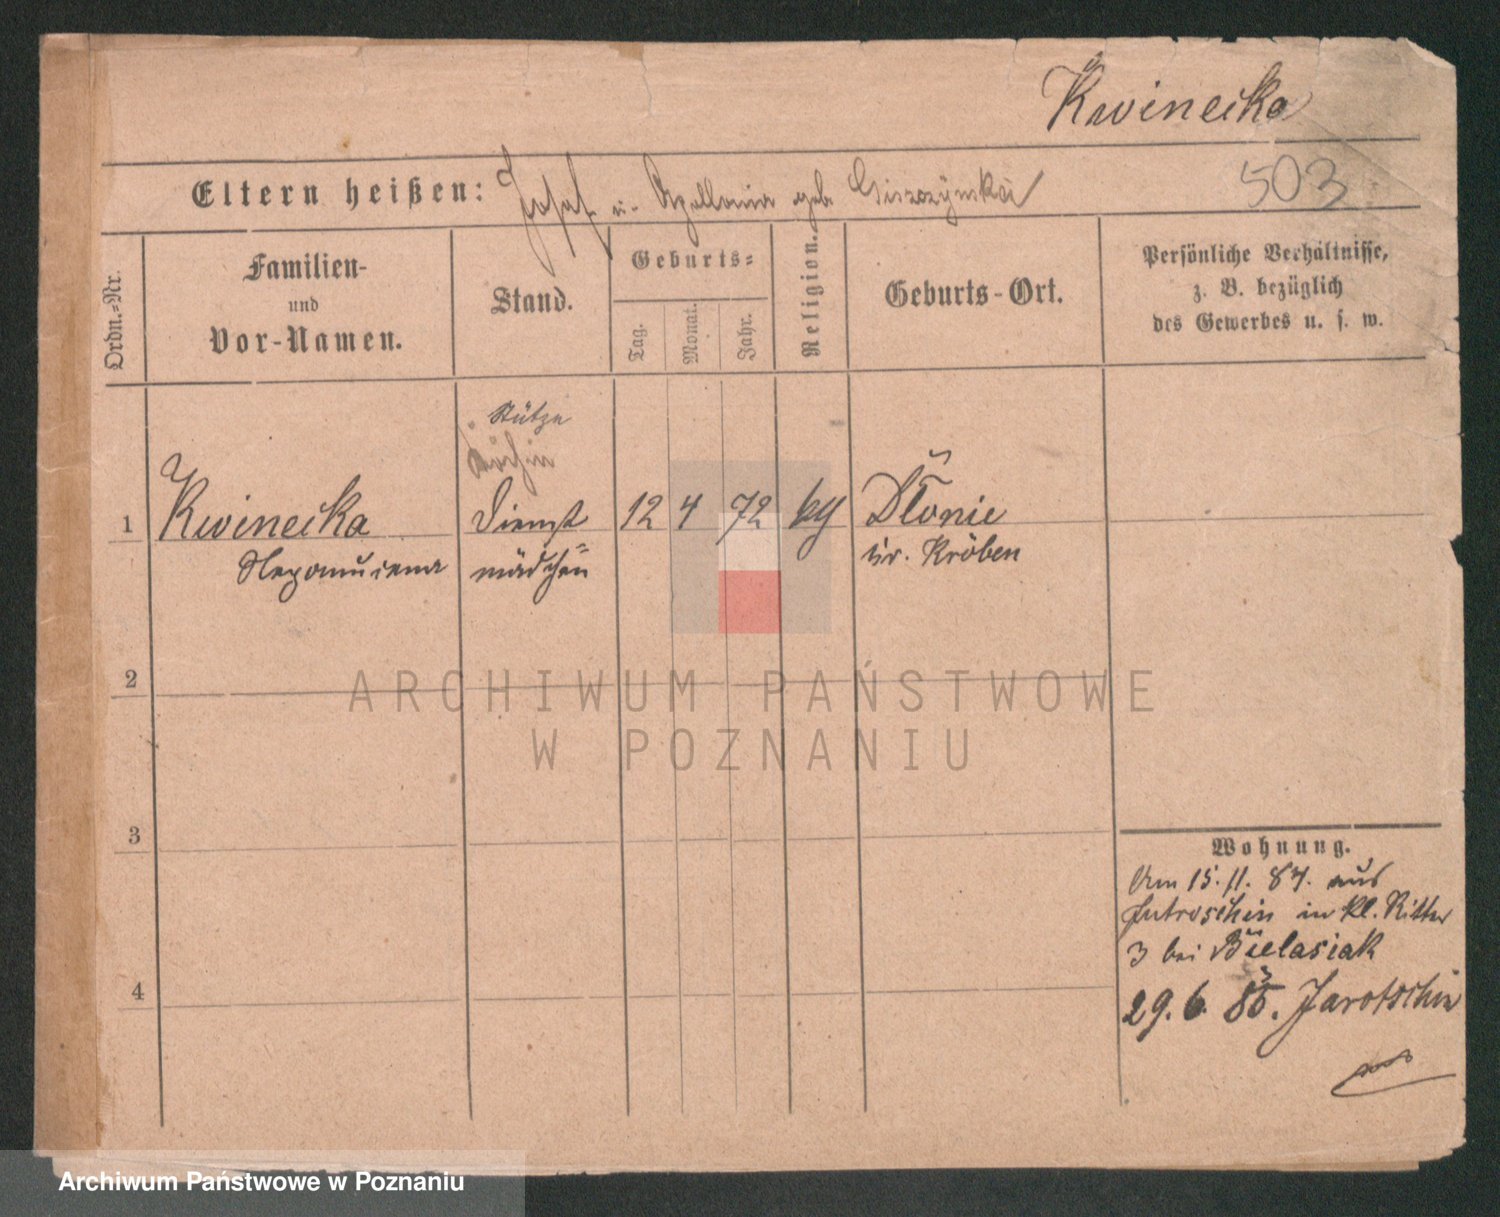 Kwinecka
Eltern heißen: Josef u. Apollonia geb.
503
Ordn.=Nr.
Familien-
und
Vor-Namen.
Stand.
Geburts=
Tag.
Monat.
Jahr.
Religion.
Geburts-Ort.
Persönliche Verhältnisse,
z. B. bezüglich
des Gewerbes u. s. w.
Stütze
Köchin
1 Kwinecka Dienst 12 4 72 Dłonie
Nepomucena mädchen Kr. Kröben
2
3
4
Wohnung.
Am 15. 11. 87. aus
Jutroschin in kl. Ritter
3 bei Bielasiak
29. 6. Jarotschin
ARCHIWUM PAŃSTWOWE
W POZNANIU
Archiwum Państwowe w Poznaniu